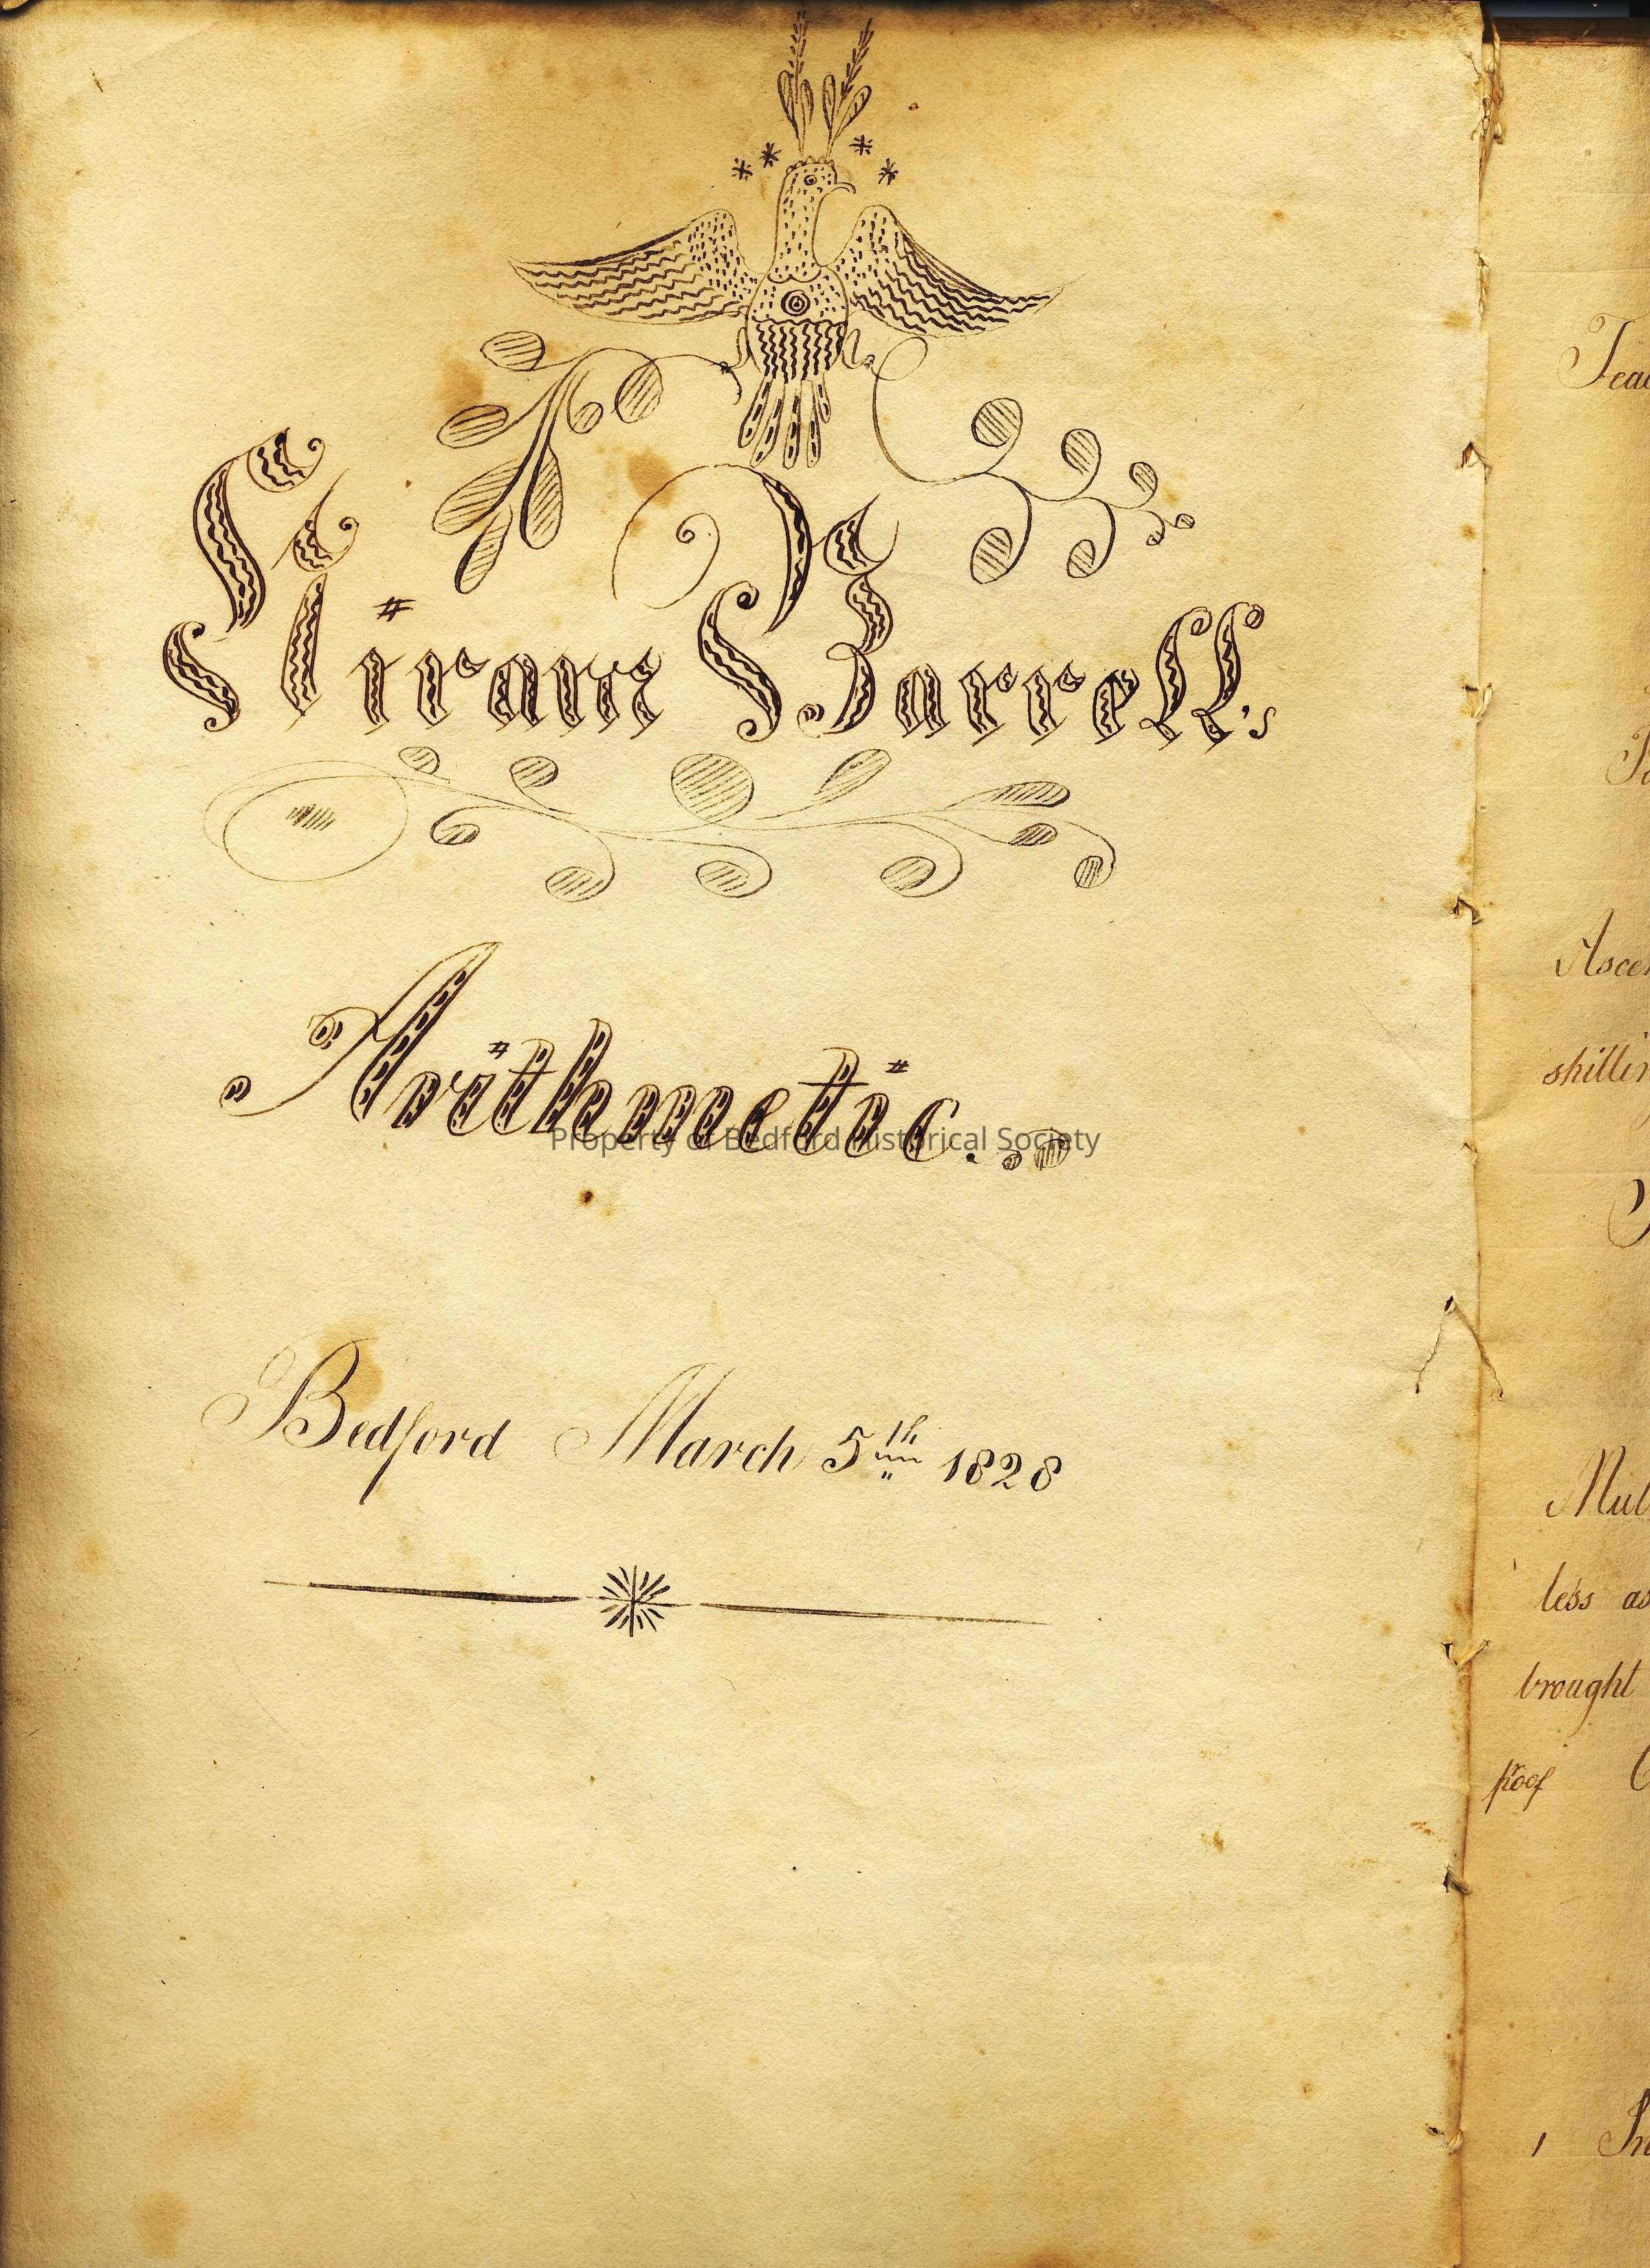 Hiram Barrell's
Arithmetic.
Property of Bedford Historical Society
Bedford March 5th 1828
Teac
Ascen
shillin
Mul
less as
brought
proof
1 In